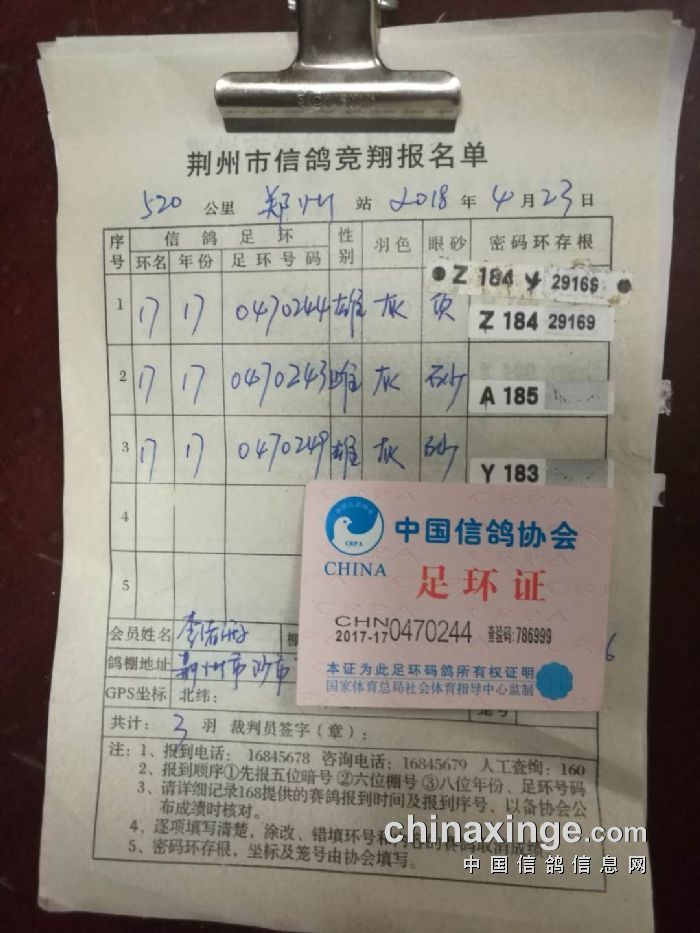 荆州市信鸽竞翔报名单
520 公里 郑州 站 2018 年 4 月 23 日
序号 信鸽足环 性别 羽色 眼砂 密码环存根
环名 年份 足环号码
Z 184 29166
1 17 17 0470244 雄 灰 黄
Z 184 29169
2 17 17 0470243 雌 灰 砂 A 185
3 17 17 0470249 雄 灰 砂 Y 183
4
5
中国信鸽协会
CRPA
CHINA
足环证
CHN
2017-17 0470244 查验码:786999
本证为此足环码鸽所有权证明
国家体育总局社会体育指导中心监制
会员姓名 李 棚
鸽棚地址 荆州市沙市 6
GPS坐标 北纬:
共计: 3 羽 裁判员签字(章):
注: 1、报到电话: 16845678 咨询电话: 16845679 人工查询: 160
2、报到顺序①先报五位暗号 ②六位棚号 ③八位年份、足环号码
3、请详细记录168提供的赛鸽报到时间及报到序号, 以备协会公
布成绩时核对。
4、逐项填写清楚, 涂改、错填环号和内容的赛鸽取消成绩
5、密码环存根, 坐标及笼号由协会填写。
chinaxinge.com
中国信鸽信息网